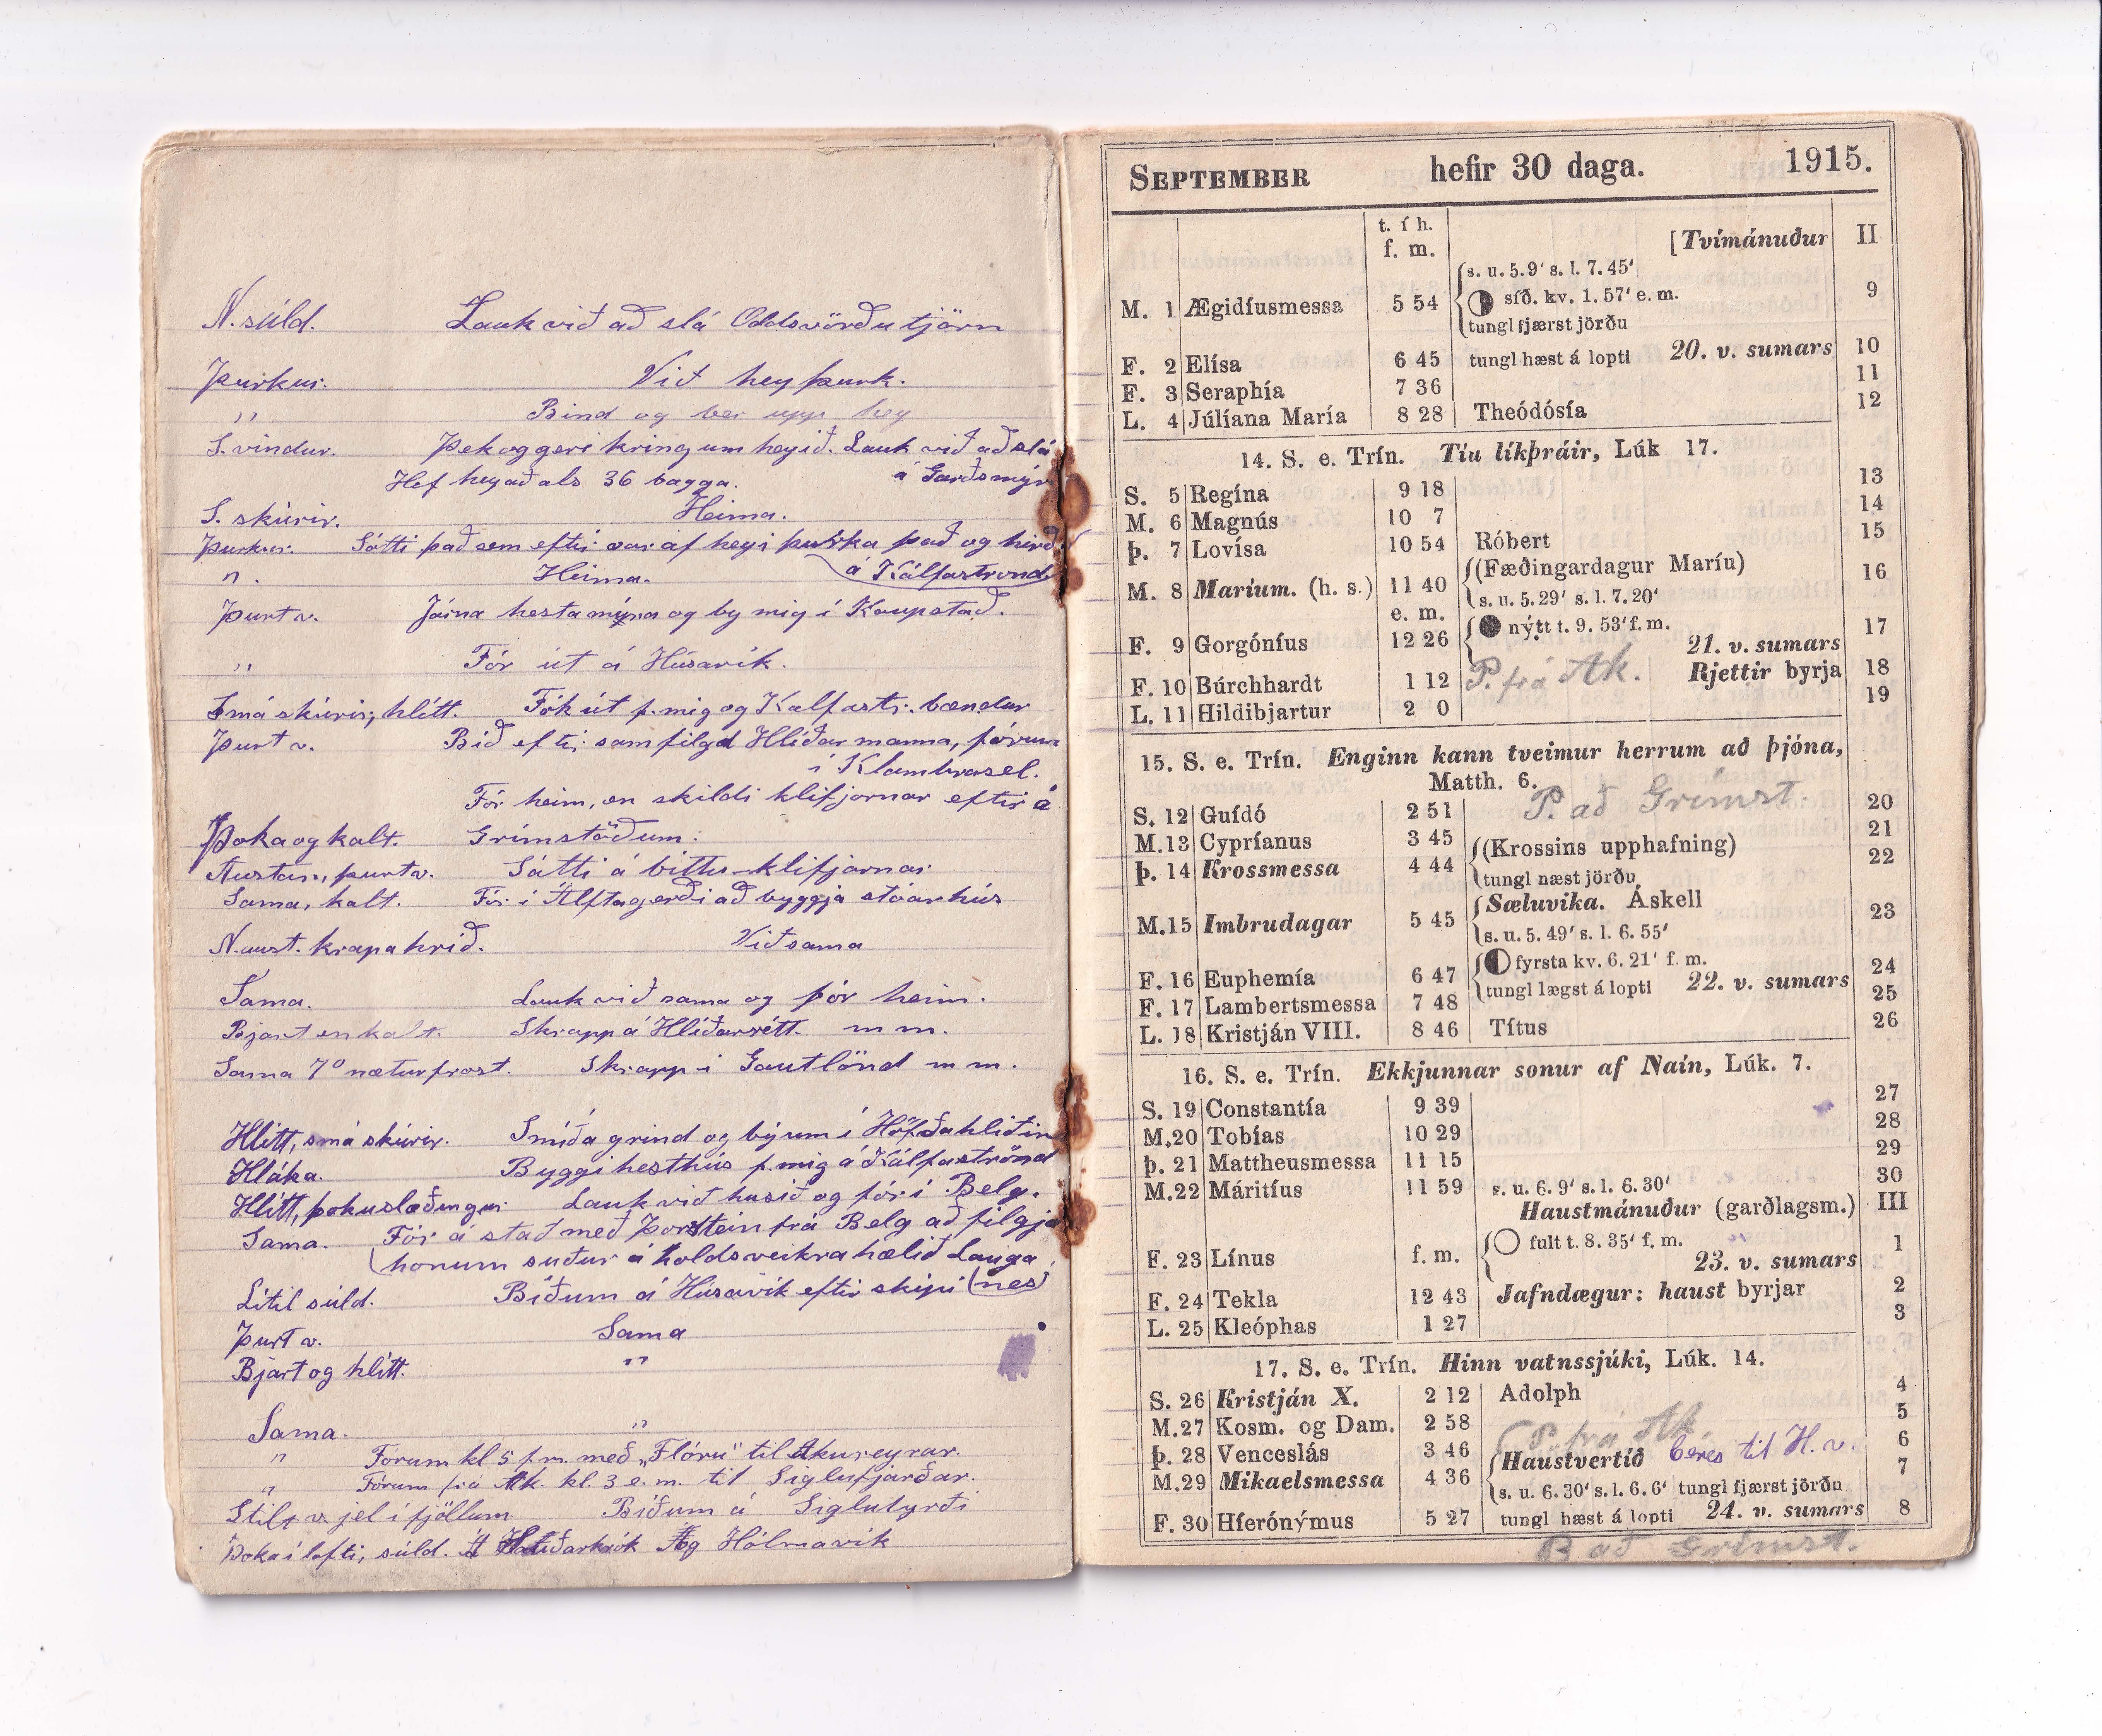 N. súld. Lauk við að slá Oddsvörðutjörn
Þurkur. Við heyþurk.
" Bind og ber upp hey
S. vindur. Þek og geri kring um heyið. Lauk við að slá
Hef heyað als 36 bagga. á Garðsmýri
S. skúrir. Heima.
Þurkur. Sátti það sem eftir var af heyi þurka það og hirð.
" . Heima. á Kálfastrond
Þurt v. Járna hesta mýna og by mig í Kaupstað.
" Fór út á Húsavík.
Smá skúrir, hlítt. Tók út f. mig og Kalfastr. bændur
Þurt v. Bið eftir samfilgd Hlíðar manna, fórum
í Klambrasel.
Fór heim, en skildi klifjarnar eftir á
Þoka og kalt. Grímstöðum.
Austan, þurt v. Sátti á bíttu klifjarnar
Sama, kalt. Fór í Álftagerði að byggja stóarhús
N. aust. krapahríð. Við sama
Sama. Lauk við sama og fór heim.
Bjart en kalt. Skrapp á Hlíðarrétt. m m.
Sama 7° næturfrost. Skrapp í Gautlönd m m.
Hlítt, smá skúrir. Smíða grind og býrum í Höfðahliðin
Hláka. Byggi hesthús f. mig á Kálfaströnd
Hlítt, þokuslæðingur. Lauk við husið og fór í Belg.
Sama. Fór á stað með Þorstein frá Belg að filgja
(honum suður á holdsveikrahælið Lauga
Lítil súld. Bíðum á Húsavík eftir skipi (nes)
Þurt v. Sama
Bjart og hlítt. "
Sama. "
" Fórum kl 5 f.m. með „Flóru" til Akureyrar.
" Fórum frá Ak. kl. 3 e. m. til Siglufjarðar.
Stilt v. jel í fjöllum. Bíðum á Siglufyrði
Þoka í lofti, súld. Á Og Hólmavík
SEPTEMBER hefir 30 daga. 1915.
t. í h. [Tvímánuður II
f. m.
s. u. 5.9' s. l. 7.45'
M. 1 Ægidíusmessa 5 54 síð. kv. 1. 57' e. m. 9
tungl fjærst jörðu
F. 2 Elísa 6 45 tungl hæst á lopti 20. v. sumars 10
F. 3 Seraphía 7 36 11
L. 4 Júlíana María 8 28 Theódósía 12
14. S. e. Trín. Tíu líkþráir, Lúk 17.
S. 5 Regína 9 18 13
M. 6 Magnús 10 7 14
Þ. 7 Lovísa 10 54 Róbert 15
(Fæðingardagur Maríu)
M. 8 Maríum. (h. s.) 11 40 s. u. 5.29' s. l. 7.20' 16
e. m.
nýtt t. 9. 53' f. m.
F. 9 Gorgóníus 12 26 21. v. sumars 17
F. 10 Búrchhardt 1 12 P. frá Ak. Rjettir byrja 18
L. 11 Hildibjartur 2 0 19
15. S. e. Trín. Enginn kann tveimur herrum að þjóna,
Matth. 6.
S. 12 Guídó 2 51 P. að Grímst. 20
M. 13 Cypríanus 3 45 (Krossins upphafning) 21
Þ. 14 Krossmessa 4 44 tungl næst jörðu 22
Sæluvika. Áskell
M. 15 Imbrudagar 5 45 s. u. 5. 49' s. l. 6. 55' 23
fyrsta kv. 6. 21' f. m.
F. 16 Euphemía 6 47 tungl lægst á lopti 22. v. sumars 24
F. 17 Lambertsmessa 7 48 25
L. 18 Kristján VIII. 8 46 Títus 26
16. S. e. Trín. Ekkjunnar sonur af Nain, Lúk. 7.
S. 19 Constantía 9 39 27
M. 20 Tobías 10 29 28
Þ. 21 Mattheusmessa 11 15 29
M. 22 Máritíus 11 59 s. u. 6. 9' s. l. 6. 30' 30
Haustmánuður (garðlagsm.) III
fult t. 8. 35' f. m.
F. 23 Línus f. m. 23. v. sumars 1
F. 24 Tekla 12 43 Jafndægur: haust byrjar 2
L. 25 Kleóphas 1 27 3
17. S. e. Trín. Hinn vatnssjúki, Lúk. 14.
S. 26 Kristján X. 2 12 Adolph 4
M. 27 Kosm. og Dam. 2 58 P. frá Ak. 5
Þ. 28 Venceslás 3 46 Haustvertíð beres til H. v. 6
M. 29 Mikaelsmessa 4 36 s. u. 6. 30' s. l. 6. 6' tungl fjærst jörðu 7
F. 30 Híerónýmus 5 27 tungl hæst á lopti 24. v. sumars 8
P. að Grímst.